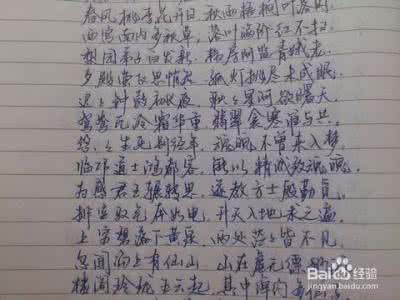 春风桃李花开日 秋雨梧桐叶落时
西宫南内多秋草 落叶满阶红不扫
梨园弟子白发新 椒房阿监青娥老
夕殿萤飞思悄然 孤灯挑尽未成眠
迟迟钟鼓初长夜 耿耿星河欲曙天
鸳鸯瓦冷霜华重 翡翠衾寒谁与共
悠悠生死别经年 魂魄不曾来入梦
临邛道士鸿都客 能以精诚致魂魄
为感君王辗转思 遂教方士殷勤觅
排空驭气奔如电 升天入地求之遍
上穷碧落下黄泉 两处茫茫皆不见
忽闻海上有仙山 山在虚无缥
楼阁玲珑五云起 其中绰约
Bai 经验